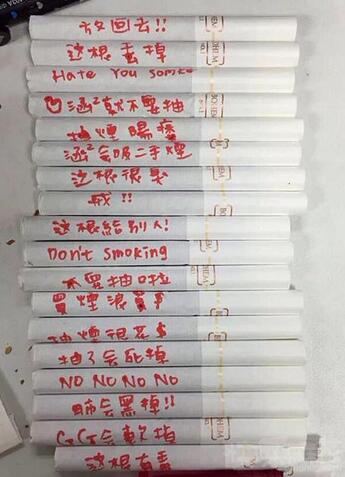 放回去!!
这根丢掉
Hate You smoke
涵²就不要抽
抽煙陽痿
涵²会吸二手煙
这根很臭
戒!!
这根給別人!
Don't smoking
不要抽啦
買煙浪費
抽煙很花$
抽了会死掉
NO NO NO NO
肺会黑掉!!
GG会軟掉
这根有毒